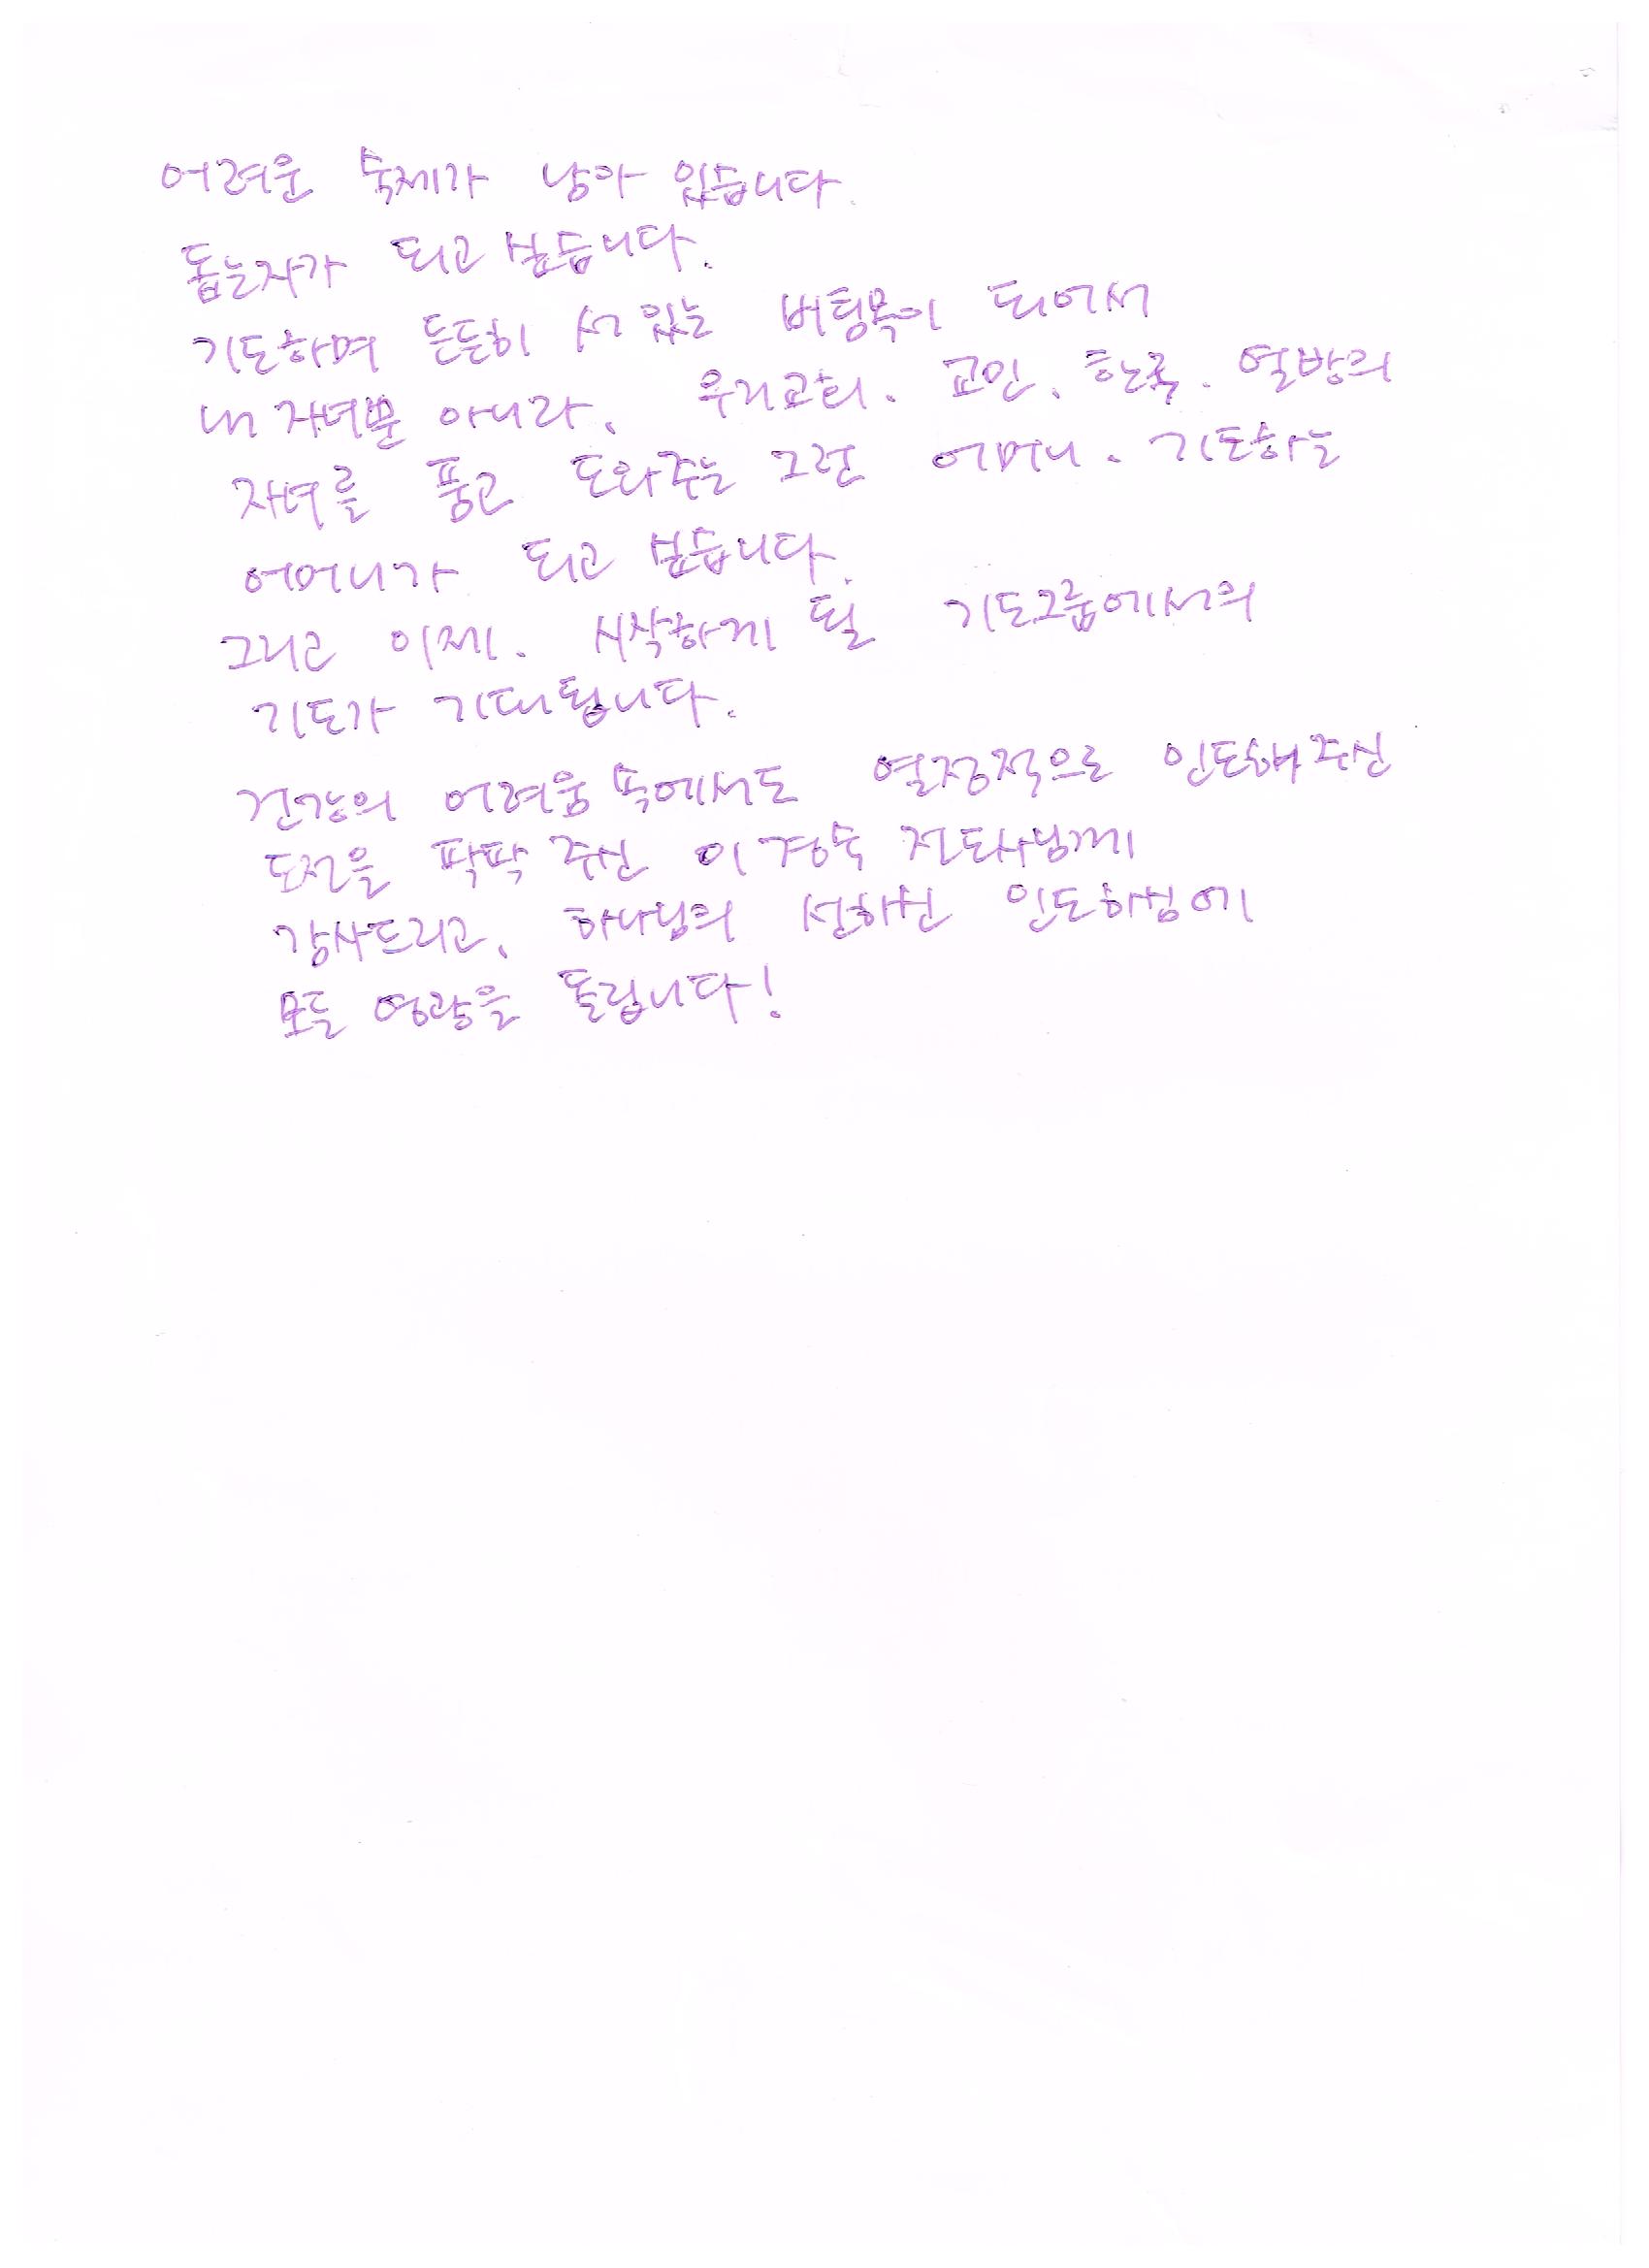 어려운 숙제가 남아 있습니다.
돕는자가 되고 싶습니다.
기도하며 든든히 서 있는 버팀목이 되어서
내 자녀뿐 아니라, 우리교회. 교인. 한국. 열방의
자녀를 품고 도와주는 그런 어머니. 기도하는
어머니가 되고 싶습니다.
그리고 이제. 시작하게 될 기도그룹에서의
기도가 기대됩니다.
건강의 어려움 속에서도 열정적으로 인도해 주신
도전을 팍팍 주신 이경숙 전도사님께
감사드리고, 하나님의 선하신 인도하심에
모든 영광을 돌립니다!